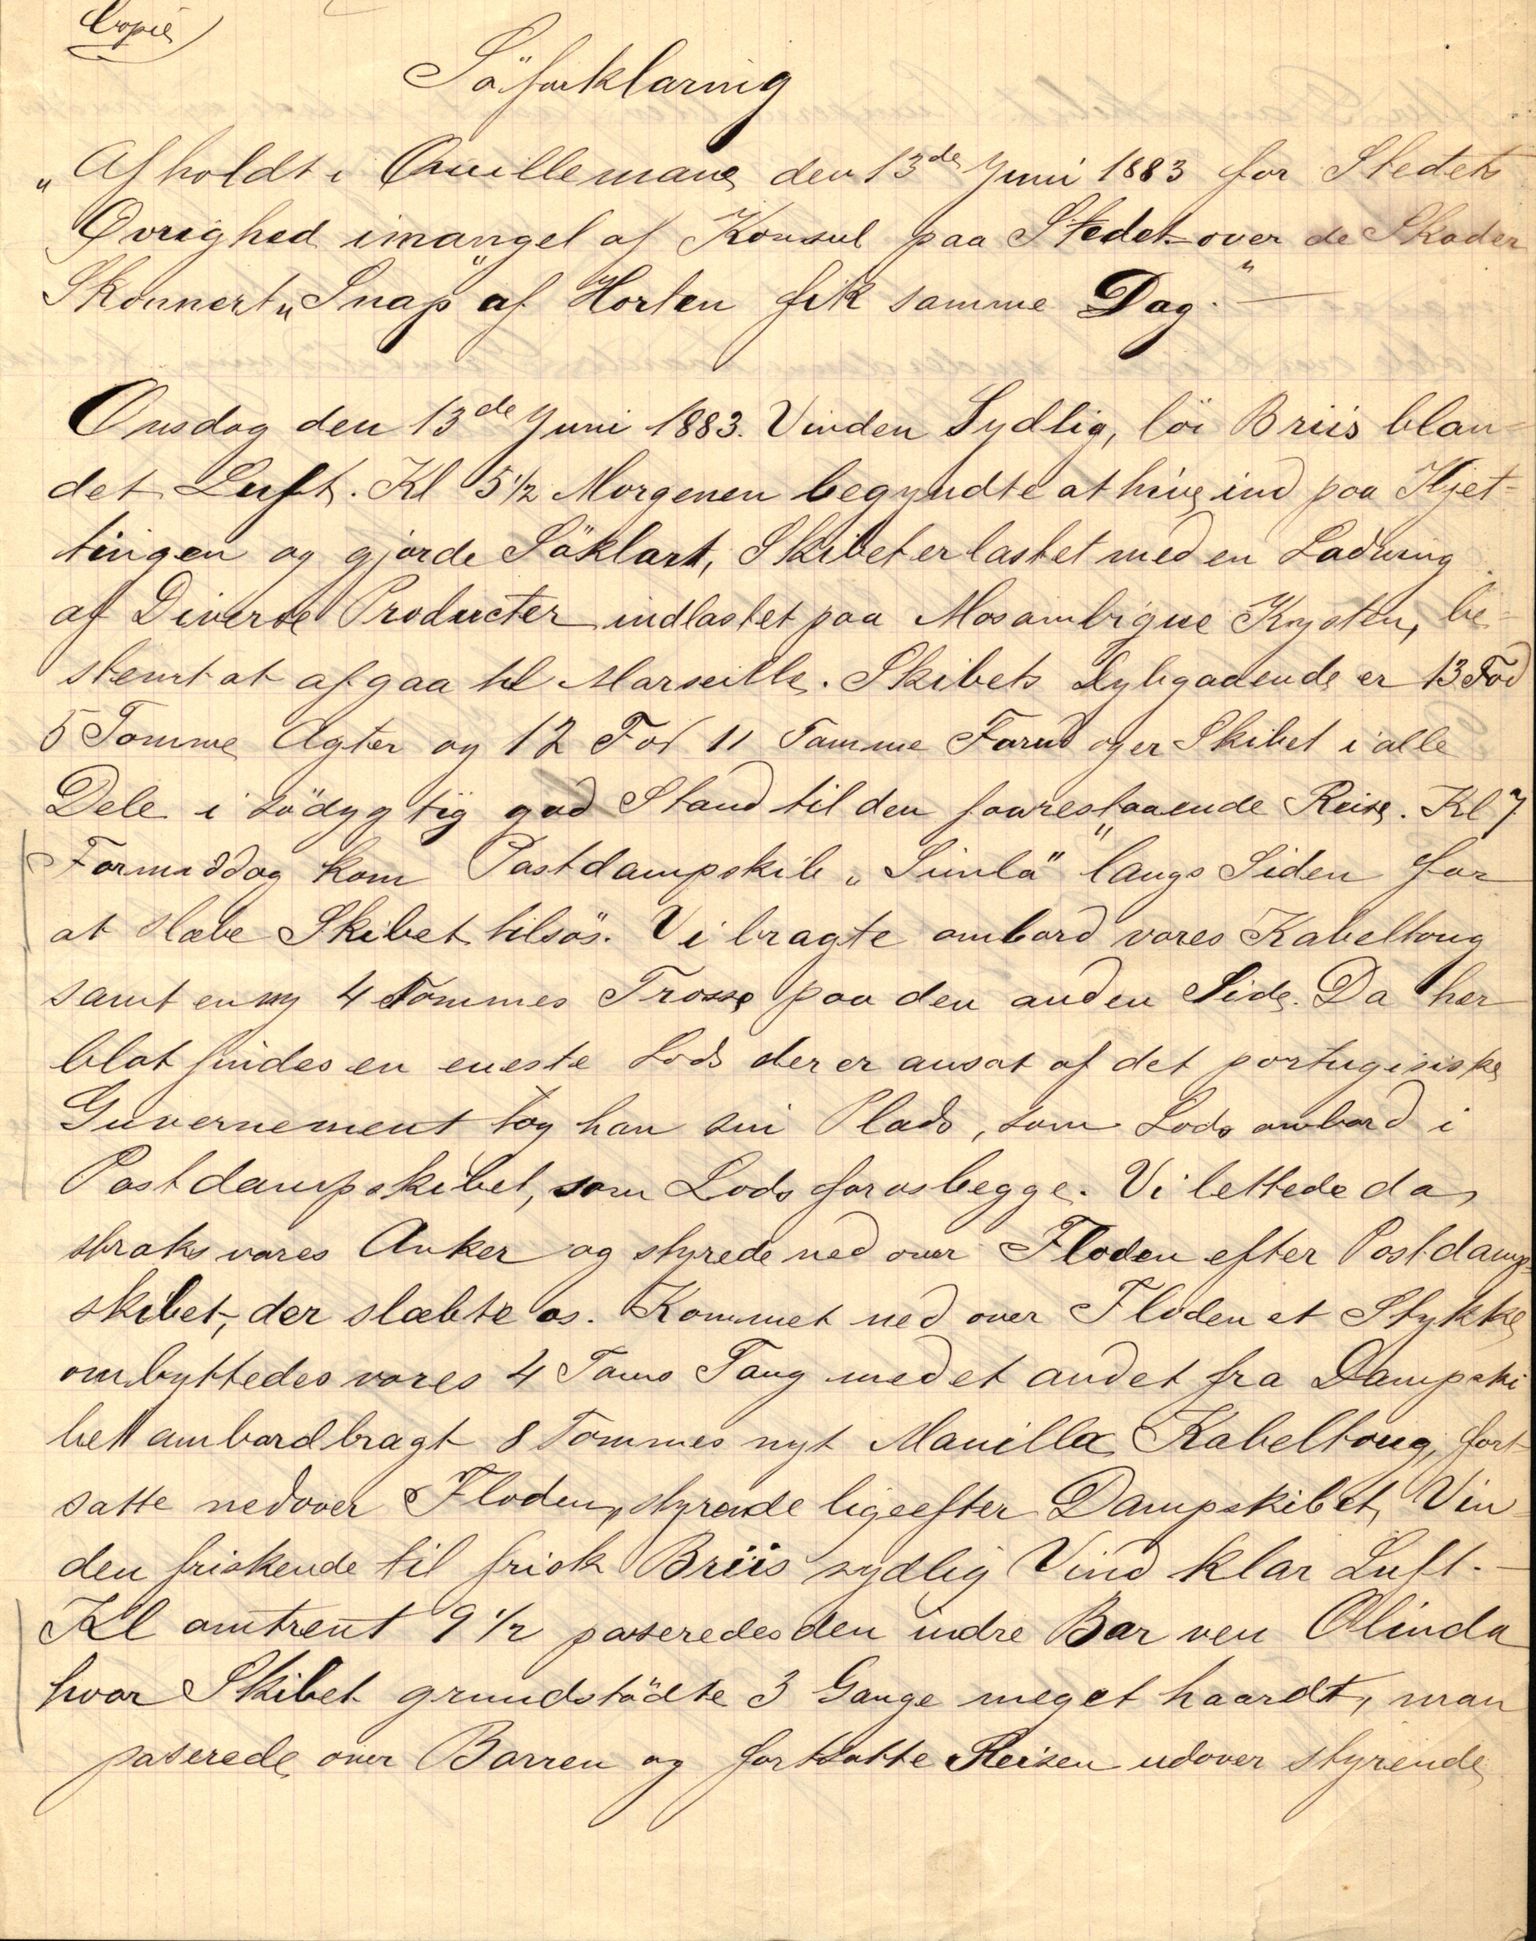 Copie
Söforklaring
„Afholdt i Quillemane den 13de Juni 1883 for Stedets
Övrighed imangel af Konsul paa Stedet over de Skader
Skonnert „Snap" af Horten fik samme Dag."—
Onsdag den 13de Juni 1883. Vinden Sydlig, löi Briis blan-
det Luft. Kl 5½ Morgenen begyndte at hive ind paa Kjet-
tingen og gjorde Söklart, Skibet er lastet med en Ladning
af Diverse Producter indlastet paa Mosambique Kysten, be-
stemt at afgaa til Marseille. Skibets Dybgaaende er 13 Fod
5 Tomme Agter og 12 Fod 11 Tomme Forud og er Skibet i alle
Dele i södygtig god Stand til den forestaaende Reise. Kl 7
Formiddag kom Postdampskib „Simla" langs Siden for
at slæbe Skibet tilsös. Vi bragte ombord vores Kabeltoug
samt en ny 4 Tommes Trosse paa den anden Side. Da her
blot findes en eneste Lods der er ansat af det portugisiske
Guvernement tog han sin Plads, som Lods ombord i
Postdampskibet, som Lods for os begge. Vi lettede da
straks vores Anker og styrede ned over Floden efter Postdamp-
skibet, der slæbte os. Kommet ned over Floden et Stykke
ombyttedes vores 4 Toms Toug med et andet fra Dampski
bet ombordbragt 8 Tommes nyt Manilla Kabeltoug, fort-
satte nedover Floden, styrende lige efter Dampskibet, Vin-
den friskende til frisk Briis sydlig Vind klar Luft.—
Kl omtrent 9½ passeredes den indre Bar ven Olinda
hvor Skibet grundstödte 3 Gange meget haardt, man
passerede over Barren og fortsatte Reisen udover styrende